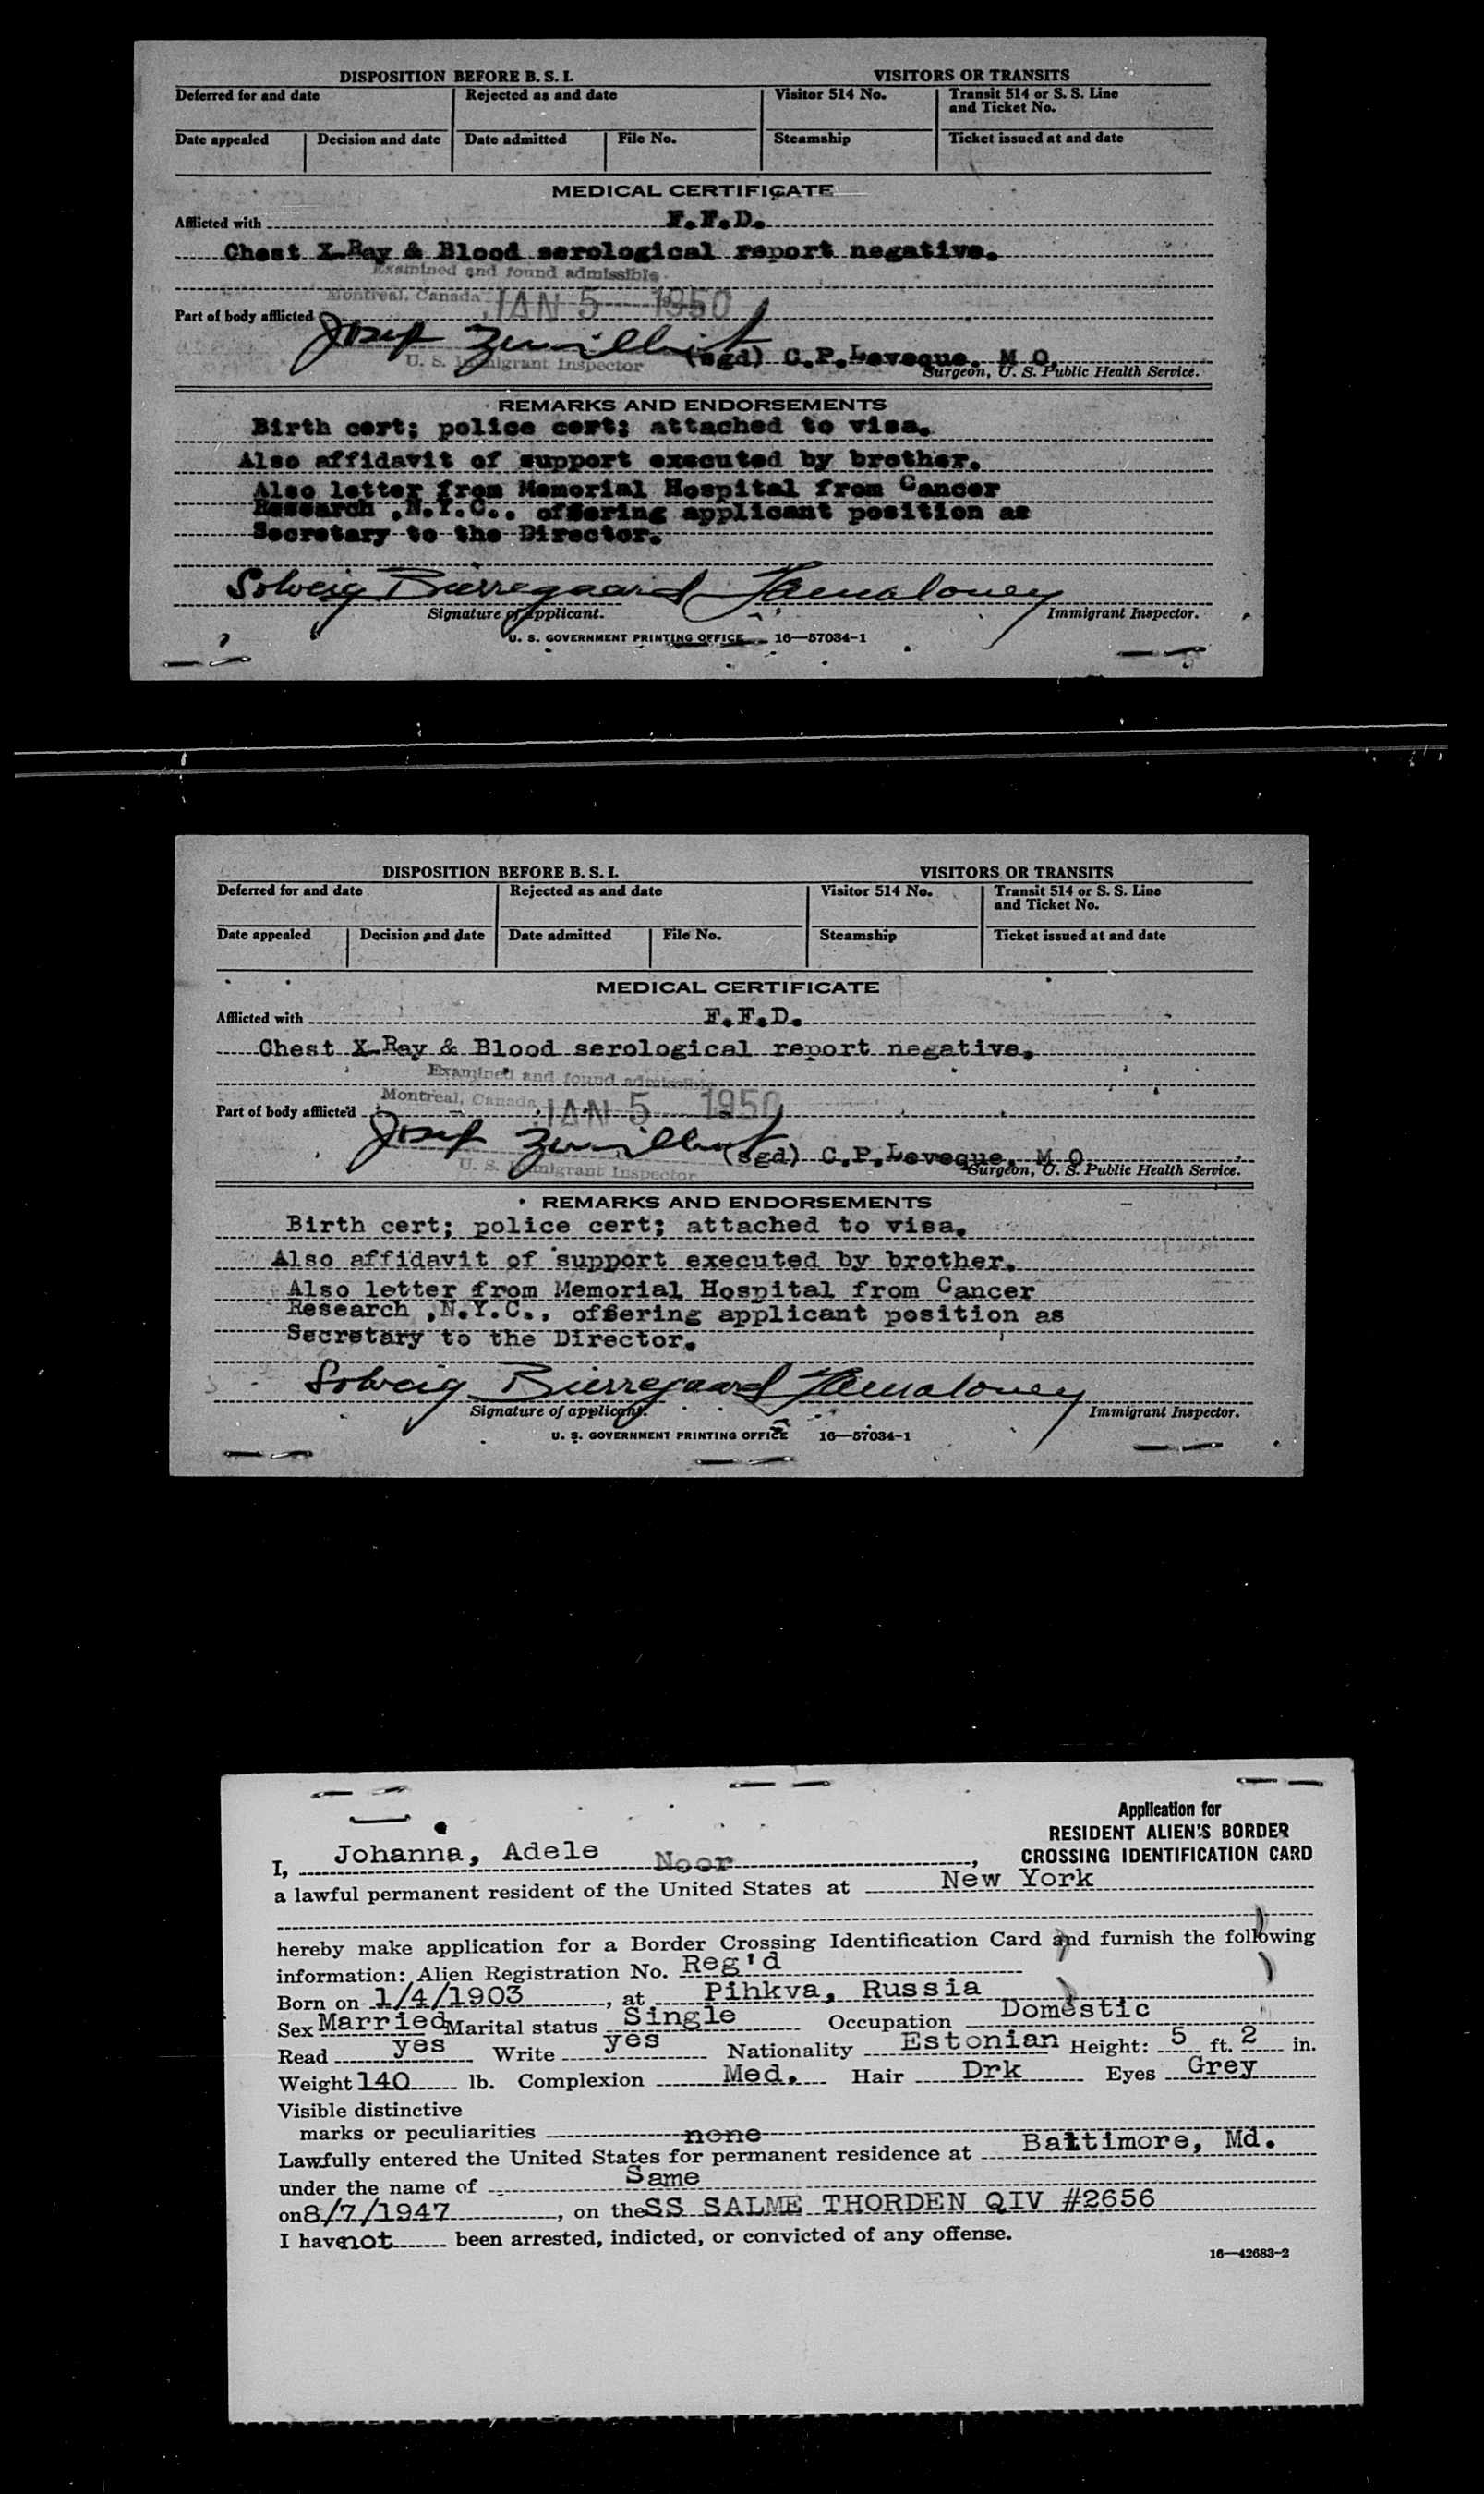 DISPOSITION BEFORE B. S. I.
VISITORS OR TRANSITS
Deferred for and date
Rejected as and date
Visitor 514 No.
Transit 514 or S. S. Line
and Ticket No.
Date appealed
Decision and date
Date admitted
File No.
Steamship
Ticket issued at and date
MEDICAL CERTIFICATE
Afflicted with F.F.D.
Chest X-Ray & Blood serological report negative.
Examined and found admissible
Montreal, Canada JAN 5 1950
Part of body afflicted
Josef
(sgd) C.P.Leveque, M O.
U. S. Immigrant Inspector
Surgeon, U. S. Public Health Service.
REMARKS AND ENDORSEMENTS
Birth cert; police cert; attached to visa.
Also affidavit of support executed by brother.
Also letter from Memorial Hospital from Cancer
Research ,N.Y.C., offering applicant position as
Secretary to the Director.
Solveig Bierregaard
Signature of applicant.
Immigrant Inspector.
U. S. GOVERNMENT PRINTING OFFICE 16—57034-1
DISPOSITION BEFORE B. S. I.
VISITORS OR TRANSITS
Deferred for and date
Rejected as and date
Visitor 514 No.
Transit 514 or S. S. Line
and Ticket No.
Date appealed
Decision and date
Date admitted
File No.
Steamship
Ticket issued at and date
MEDICAL CERTIFICATE
Afflicted with F.F.D.
Chest X-Ray & Blood serological report negative.
Examined and found admissible
Montreal, Canada JAN 5 1950
Part of body afflicted
Josef
(sgd) C.P.Leveque, M O
U. S. Immigrant Inspector
Surgeon, U. S. Public Health Service.
REMARKS AND ENDORSEMENTS
Birth cert; police cert; attached to visa.
Also affidavit of support executed by brother.
Also letter from Memorial Hospital from Cancer
Research ,N.Y.C., offering applicant position as
Secretary to the Director.
Solveig Bierregaard
Signature of applicant.
Immigrant Inspector.
U. S. GOVERNMENT PRINTING OFFICE 16—57034-1
Application for
RESIDENT ALIEN'S BORDER
CROSSING IDENTIFICATION CARD
I, Johanna, Adele Noor,
a lawful permanent resident of the United States at New York
hereby make application for a Border Crossing Identification Card and furnish the following
information: Alien Registration No. Reg'd
Born on 1/4/1903, at Pihkva, Russia
Sex Married Marital status Single Occupation Domestic
Read yes Write yes Nationality Estonian Height: 5 ft. 2 in.
Weight 140 lb. Complexion Med. Hair Drk Eyes Grey
Visible distinctive
marks or peculiarities none
Lawfully entered the United States for permanent residence at Baltimore, Md.
under the name of Same
on 8/7/1947, on the SS SALME THORDEN QIV #2656
I have not been arrested, indicted, or convicted of any offense.
16—42683-2